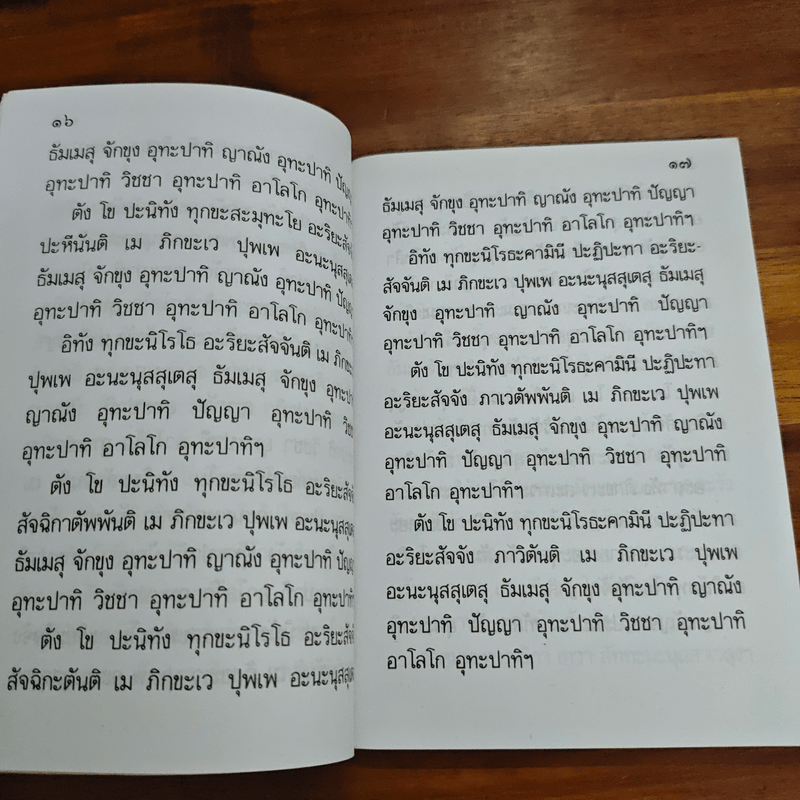 ๑๖
ธัมเมสุ จักขุง อุทะปาทิ ญาณัง อุทะปาทิ
อุทะปาทิ วิชชา อุทะปาทิ อาโลโก อุทะปาทิ
ตัง โข ปะนิทัง ทุกขะสะมุทะโย อะริยะสัจ
ปะหีนันติ เม ภิกขะเว ปุพเพ อะนะนุสสุเต
ธัมเมสุ จักขุง อุทะปาทิ ญาณัง อุทะปาทิ
อุทะปาทิ วิชชา อุทะปาทิ อาโลโก อุทะปาทิ
อิทัง ทุกขะนิโรโธ อะริยะสัจจันติ เม
ปุพเพ อะนะนุสสุเตสุ ธัมเมสุ จักขุง
ญาณัง อุทะปาทิ ปัญญา อุทะปาทิ
อุทะปาทิ อาโลโก อุทะปาทิฯ
ตัง โข ปะนิทัง ทุกขะนิโรโธ อะริยะสัจ
สัจฉิกาตัพพันติ เม ภิกขะเว ปุพเพ อะนะนุสสุเต
ธัมเมสุ จักขุง อุทะปาทิ ญาณัง อุทะปาทิ
อุทะปาทิ วิชชา อุทะปาทิ อาโลโก อุทะปาทิ
ตัง โข ปะนิทัง ทุกขะนิโรโธ อะริยะสัจ
สัจฉิกะตันติ เม ภิกขะเว ปุพเพ อะนะนุสสุเต
๑๗
ธัมเมสุ จักขุง อุทะปาทิ ญาณัง อุทะปาทิ ปัญญา
อุทะปาทิ วิชชา อุทะปาทิ อาโลโก อุทะปาทิฯ
อิทัง ทุกขะนิโรธะคามินี ปะฏิปะทา อะริยะ-
สัจจันติ เม ภิกขะเว ปุพเพ อะนะนุสสุเตสุ ธัมเมสุ
จักขุง อุทะปาทิ ญาณัง อุทะปาทิ ปัญญา
อุทะปาทิ วิชชา อุทะปาทิ อาโลโก อุทะปาทิฯ
ตัง โข ปะนิทัง ทุกขะนิโรธะคามินี ปะฏิปะทา
อะริยะสัจจัง ภาเวตัพพันติ เม ภิกขะเว ปุพเพ
อะนะนุสสุเตสุ ธัมเมสุ จักขุง อุทะปาทิ ญาณัง
อุทะปาทิ ปัญญา อุทะปาทิ วิชชา อุทะปาทิ
อาโลโก อุทะปาทิฯ
ตัง โข ปะนิทัง ทุกขะนิโรธะคามินี ปะฏิปะทา
อะริยะสัจจัง ภาวิตันติ เม ภิกขะเว ปุพเพ
อะนะนุสสุเตสุ ธัมเมสุ จักขุง อุทะปาทิ ญาณัง
อุทะปาทิ ปัญญา อุทะปาทิ วิชชา อุทะปาทิ
อาโลโก อุทะปาทิฯ